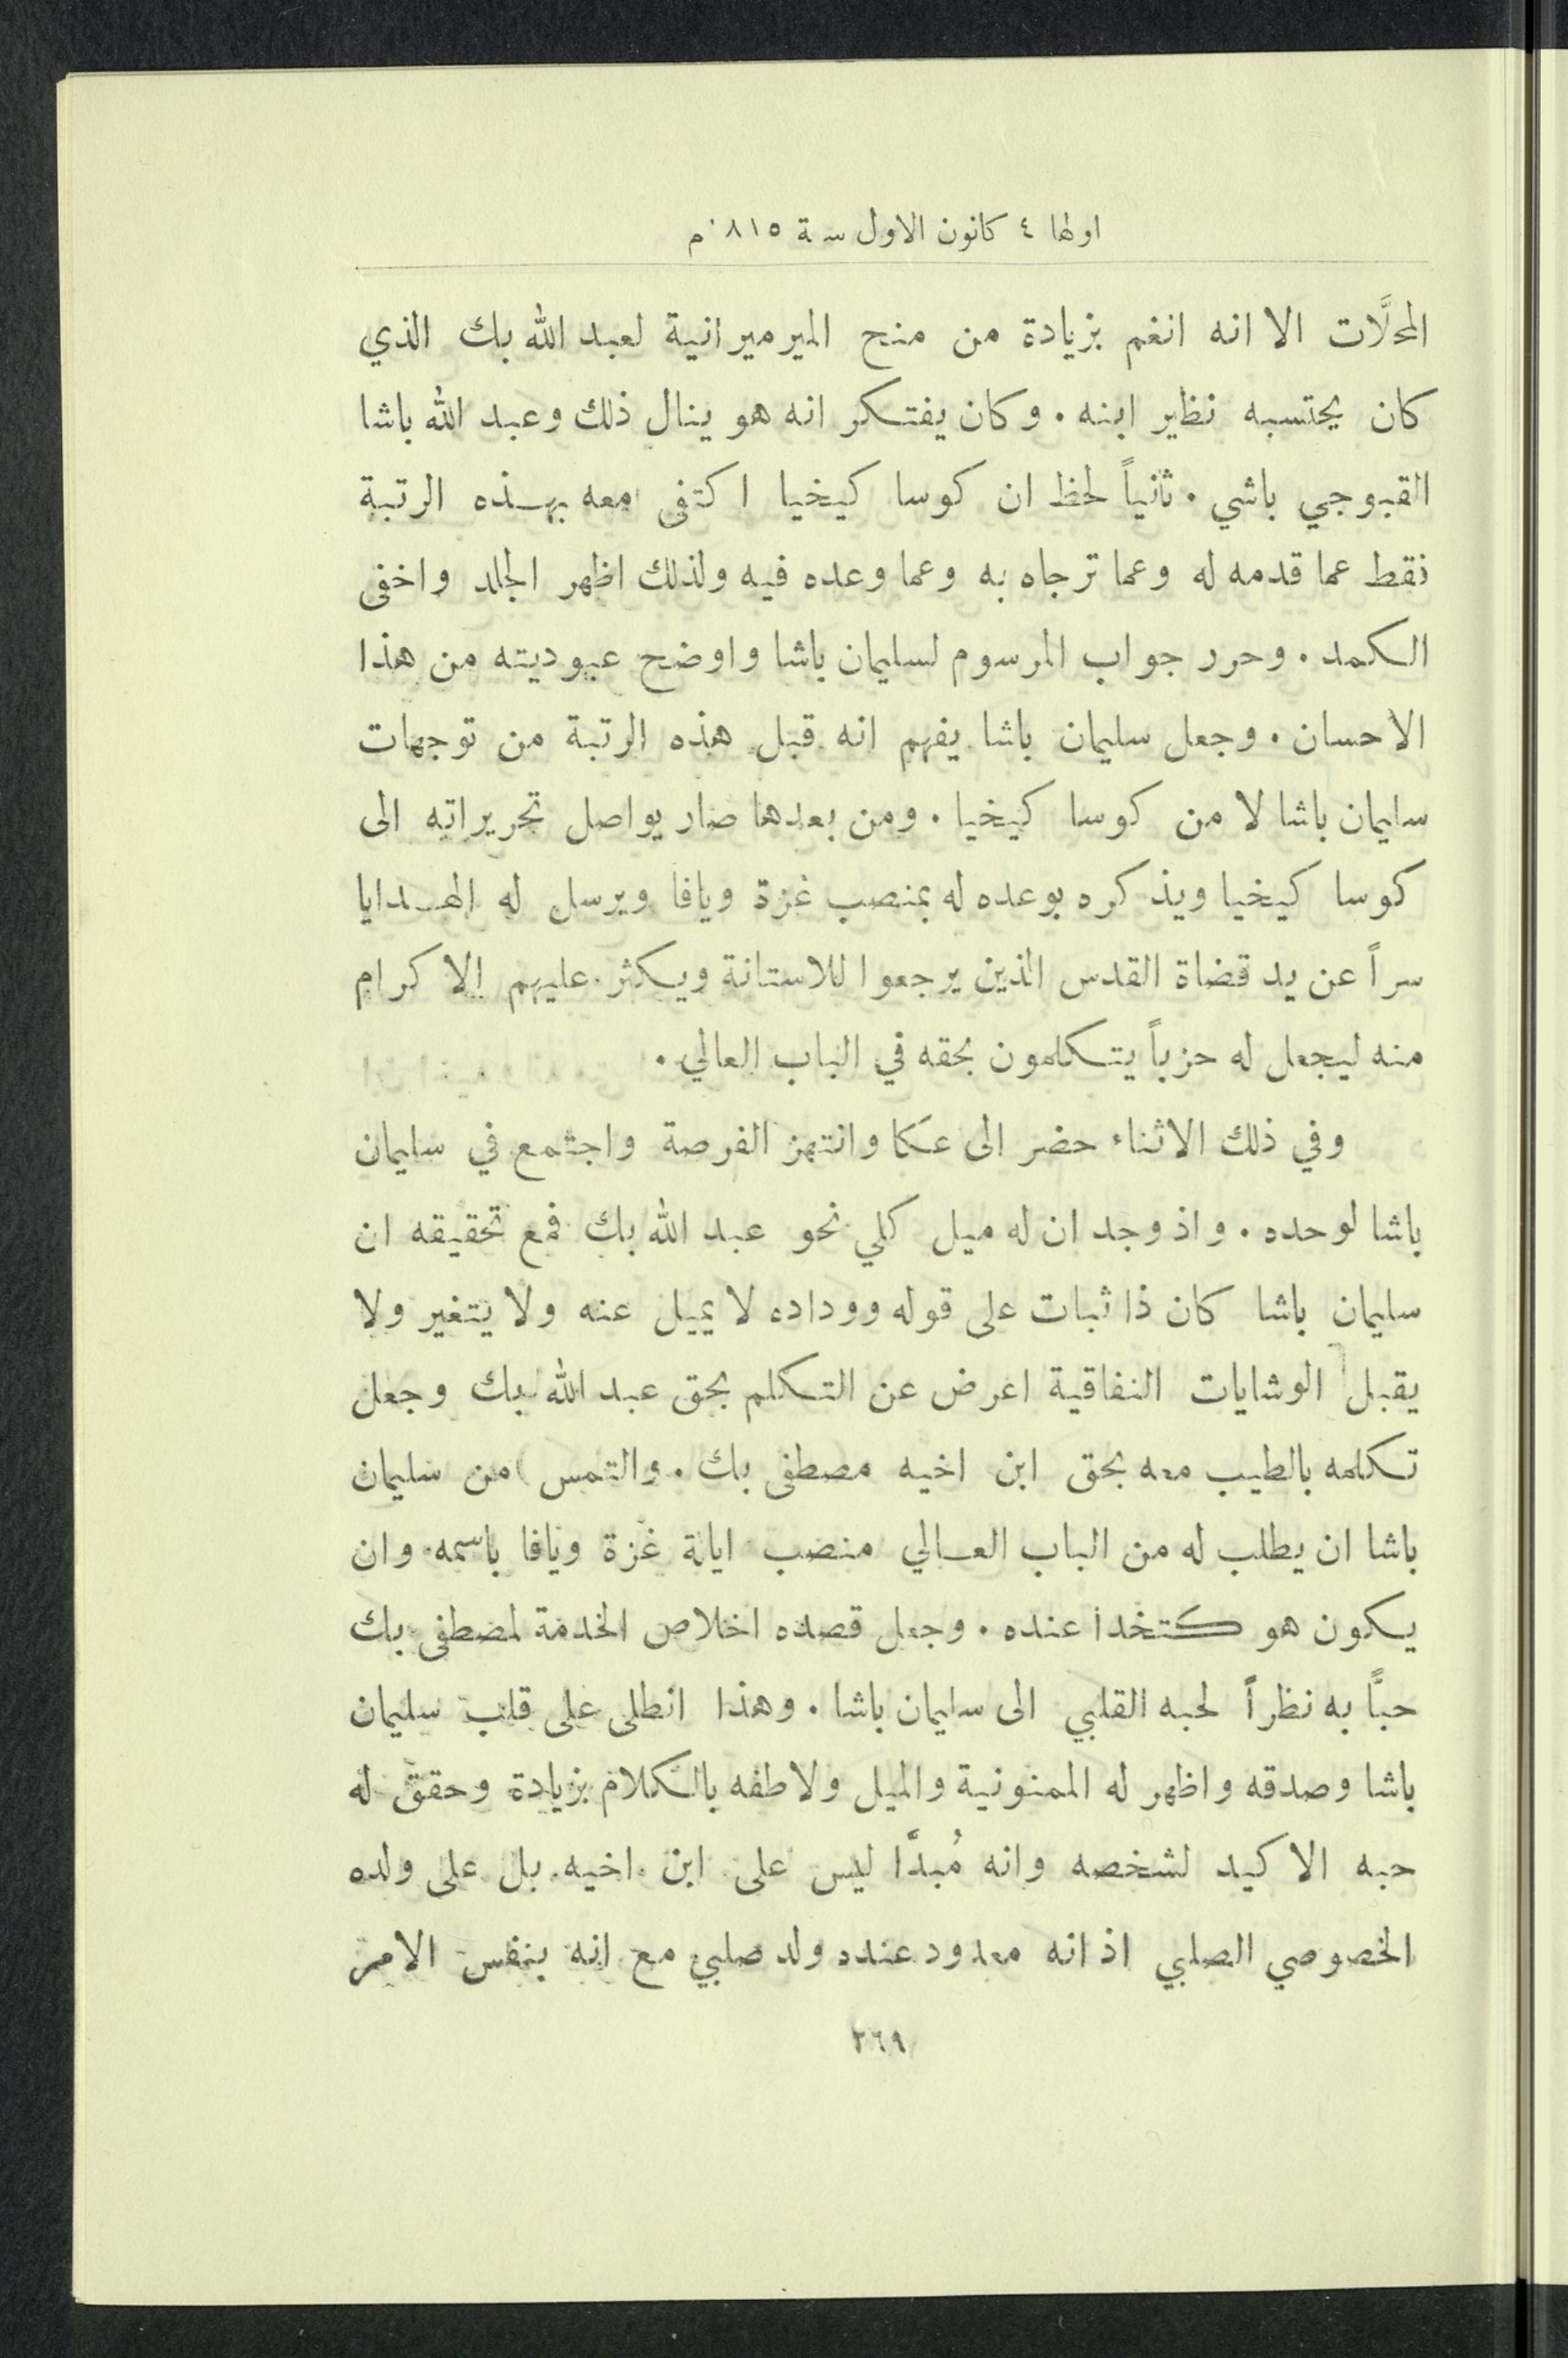 اولها ٤ كانون الاول سنة ٨١٥ م
المحلَّات الا انه انغم بزيادة من منح الميرميرانية لعبد الله بك الذي
كان يحتسبه نظاير ابنه . وكان يفتكر انه هو ينال ذلك وعبد الله باشا
القبوجي باشي . ثانياً لحظ ان كوسا كيخيا اكتفى معه بهذه الرتبة
فقط عما قدمه له وعما ترجاه به وعما وعده فيه ولذلك اظهر الجلد واخفى
الكمد . وحرر جواب المرسوم لسليمان باشا واوضح عبوديته من هذا
الاحسان . وجعل سليمان باشا يفهم انه قبل هذه الرتبة من توجهات
سليمان باشا لا من كوسا كيخيا . ومن بعدها صار يواصل تحريراته الى
كوسا كيخيا ويذكره بوعده له بمنصب غزة ويافا ويرسل له الهدايا
سراً عن يد قضاة القدس الذين يرجعوا للاستانة ويكثر عليهم الاكرام
منه ليجعل له حزباً يتكلمون بحقه في الباب العالي .
وفي ذلك الاثناء حضر الى عكا وانتهز الفرصة واجتمع في سليمان
باشا لوحده . واذ وجد ان له ميل كلي نحو عبد الله بك فمع تحقيقه ان
سليمان باشا كان ذا ثبات على قوله ووداده لا يميل عنه ولا يتغير ولا
يقبل الوشايات النفاقية اعرض عن التكلم بحق عبد الله بك وجعل
تكلمه بالطيب معه بحق ابن اخيه مصطفى بك . والتمس من سليمان
باشا ان يطلب له من الباب العالي منصب ايالة غزة ويافا باسمه وان
يكون هو كتخدا عنده . وجعل قصده اخلاص الخدمة لمصطفى بك
حبًّا به نظراً لحبه القلبي الى سليمان باشا . وهذا انطلى على قلب سليمان
باشا وصدقه واظهر له الممنونية والميل ولاطفه بالكلام بزيادة وحقق له
حبه الاكيد لشخصه وانه مُبدَّا ليس على ابن اخيه بل على ولده
الخصوصي الصلبي اذ انه معدود عنده ولد صلبي مع انه بنفس الامر
٢٦٩